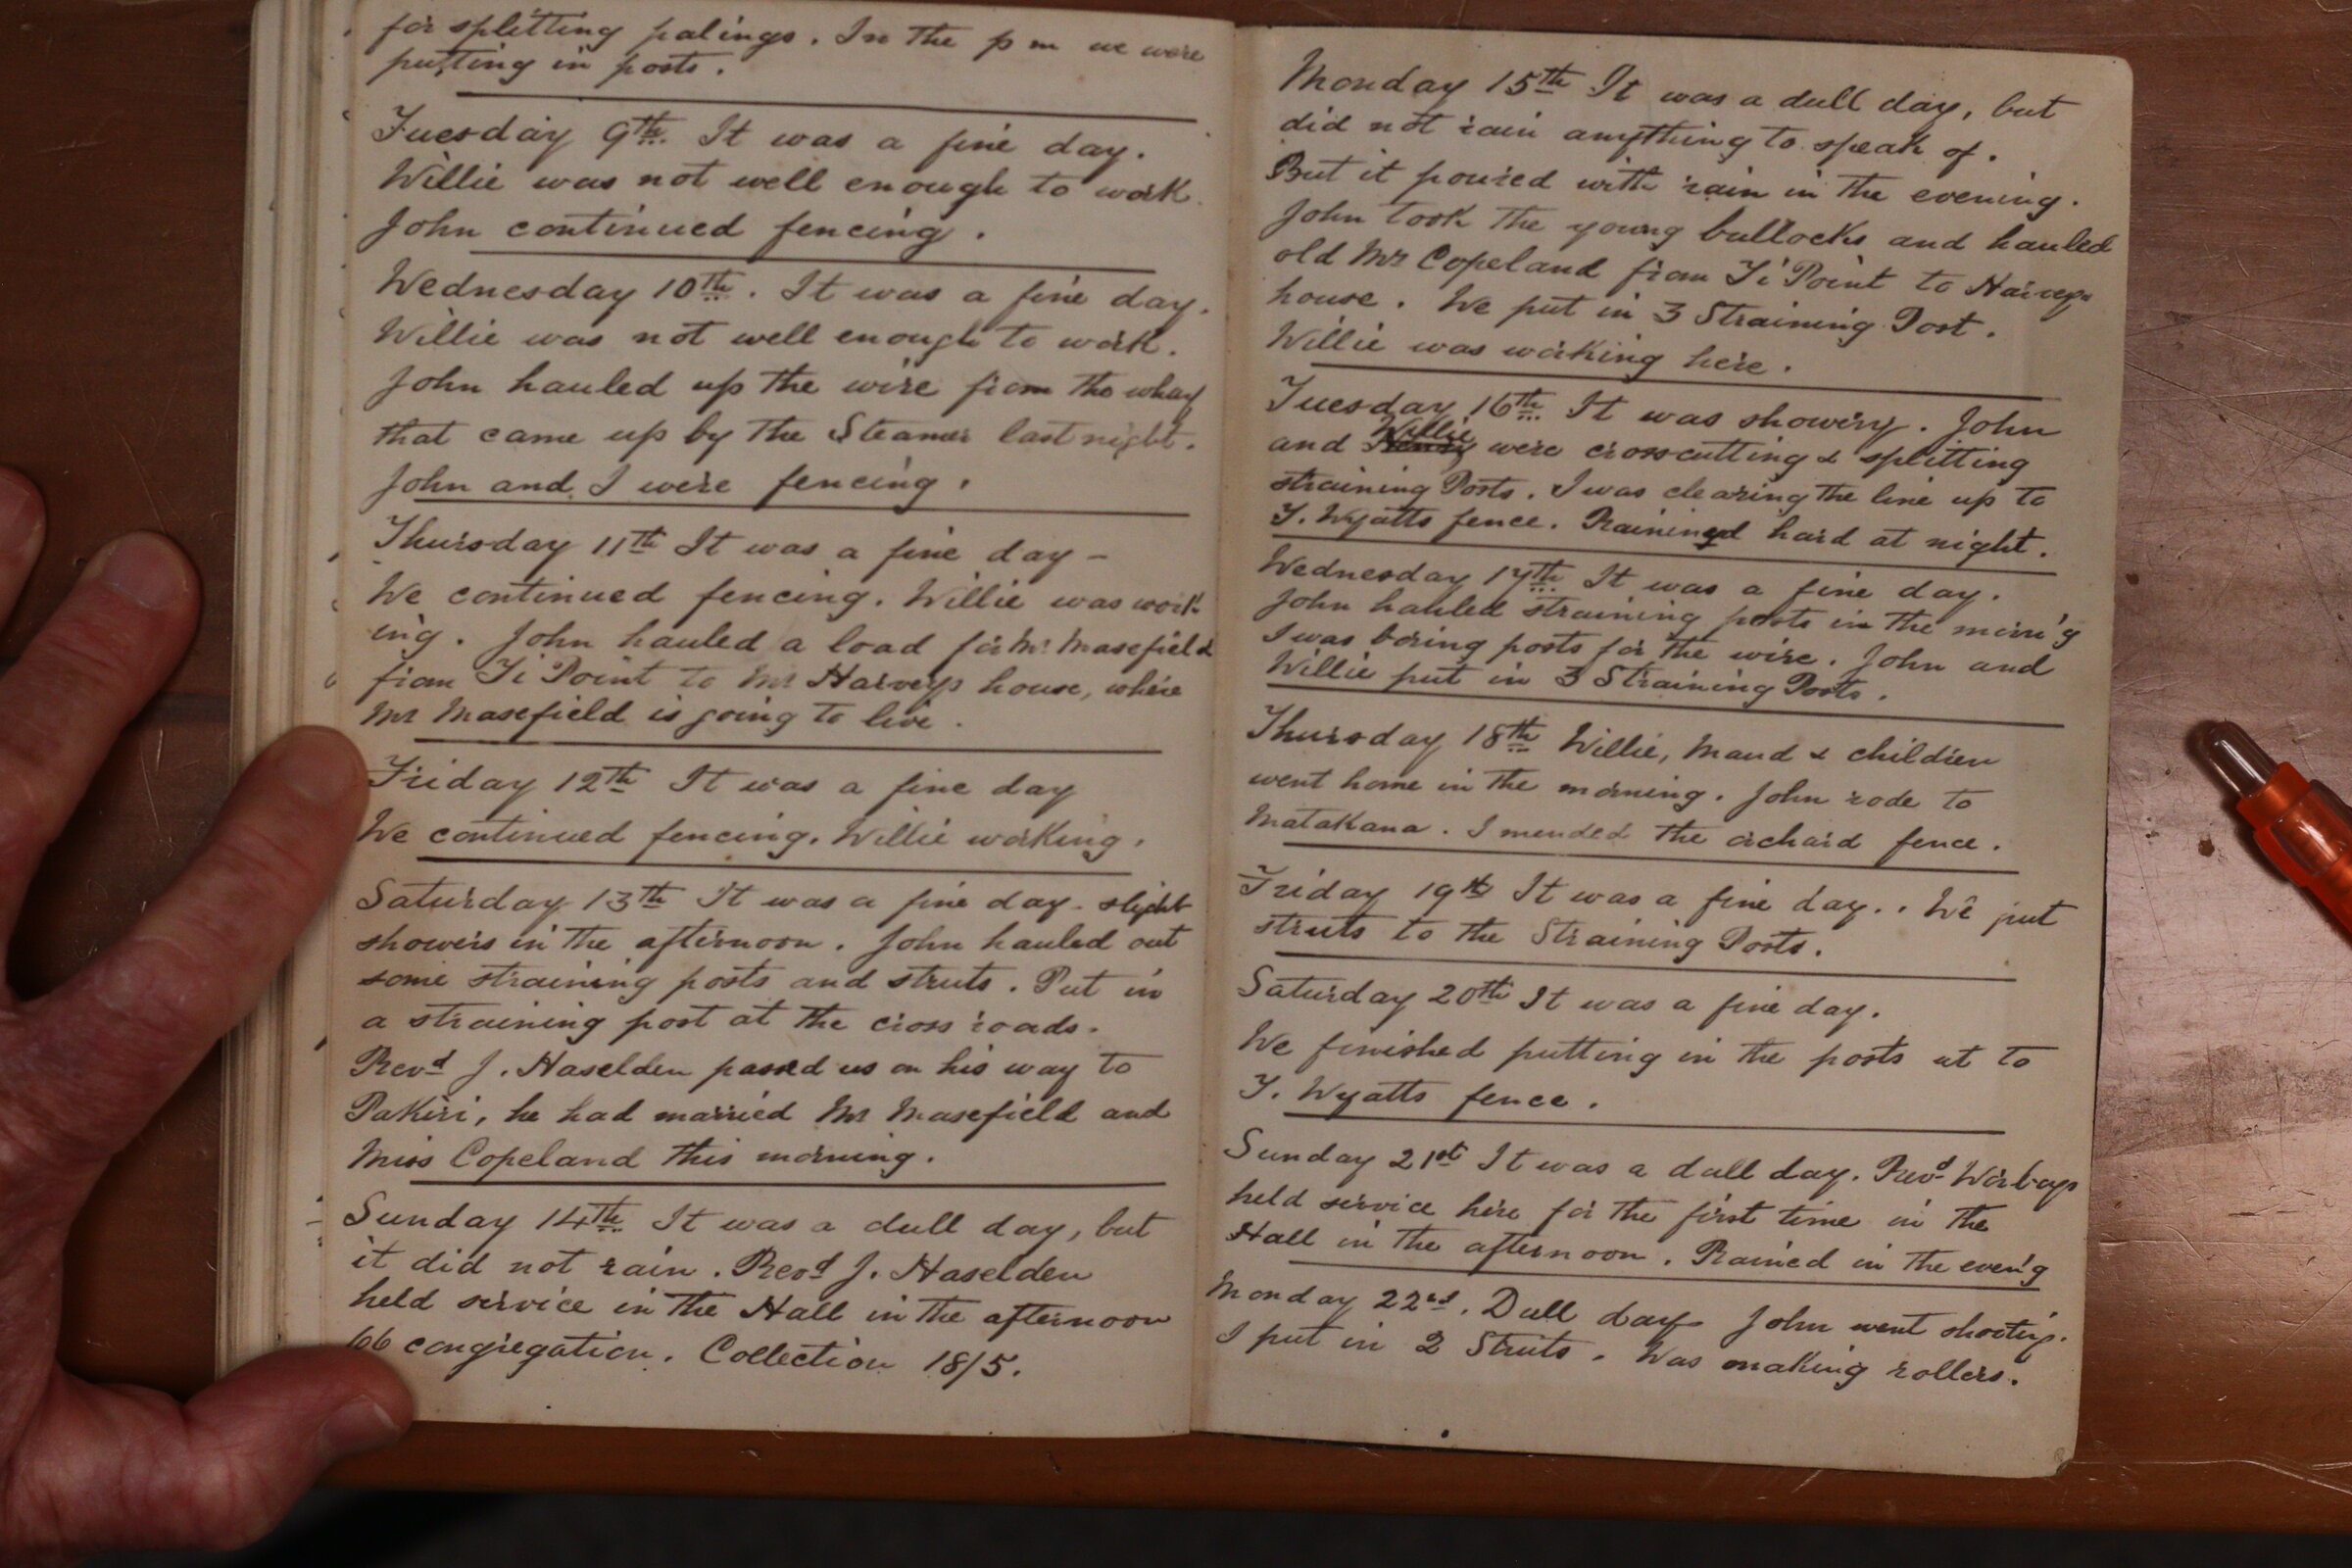 for splitting palings. In the p m we were
putting in posts.
Tuesday 9th. It was a fine day.
Willie was not well enough to work.
John continued fencing.
Wednesday 10th. It was a fine day.
Willie was not well enough to work.
John hauled up the wire from the wharf
that came up by the Steamer last night.
John and I were fencing.
Thursday 11th It was a fine day -
We continued fencing. Willie was work
ing. John hauled a load for Mr Masefield
from Ti Point to Mr Harveys house, where
Mr Masefield is going to live.
Friday 12th It was a fine day
We continued fencing. Willie working.
Saturday 13th It was a fine day - slight
showers in the afternoon. John hauled out
some straining posts and struts. Put in
a straining post at the cross roads.
Revd J. Haselden passed us on his way to
Pakiri, he had married Mr Masefield and
Miss Copeland this morning.
Sunday 14th It was a dull day, but
it did not rain. Revd J. Haselden
held service in the Hall in the afternoon
66 congregation. Collection 18/5.
Monday 15th It was a dull day, but
did not rain anything to speak of.
But it poured with rain in the evening.
John took the young bullocks and hauled
old Mr Copeland from Ti Point to Harveys
house. We put in 3 Straining Post.
Willie was working here.
Tuesday 16th It was showery. John
and Henry Willie were crosscutting & splitting
straining Posts. I was clearing the line up to
T. Wyatts fence. Rained hard at night.
Wednesday 17th It was a fine day.
John hauled straining posts in the morn'g
I was boring posts for the wire. John and
Willie put in 3 Straining Posts.
Thursday 18th Willie, Maud & children
went home in the morning. John rode to
Matakana. I mended the orchard fence.
Friday 19th It was a fine day.. We put
struts to the Straining Posts.
Saturday 20th It was a fine day.
We finished putting in the posts ut to
T. Wyatts fence.
Sunday 21st It was a dull day. Revd Worboys
held service here for the first time in the
Hall in the afternoon. Rained in the even'g
Monday 22nd. Dull day John went shooting.
I put in 2 Struts. Was making rollers.